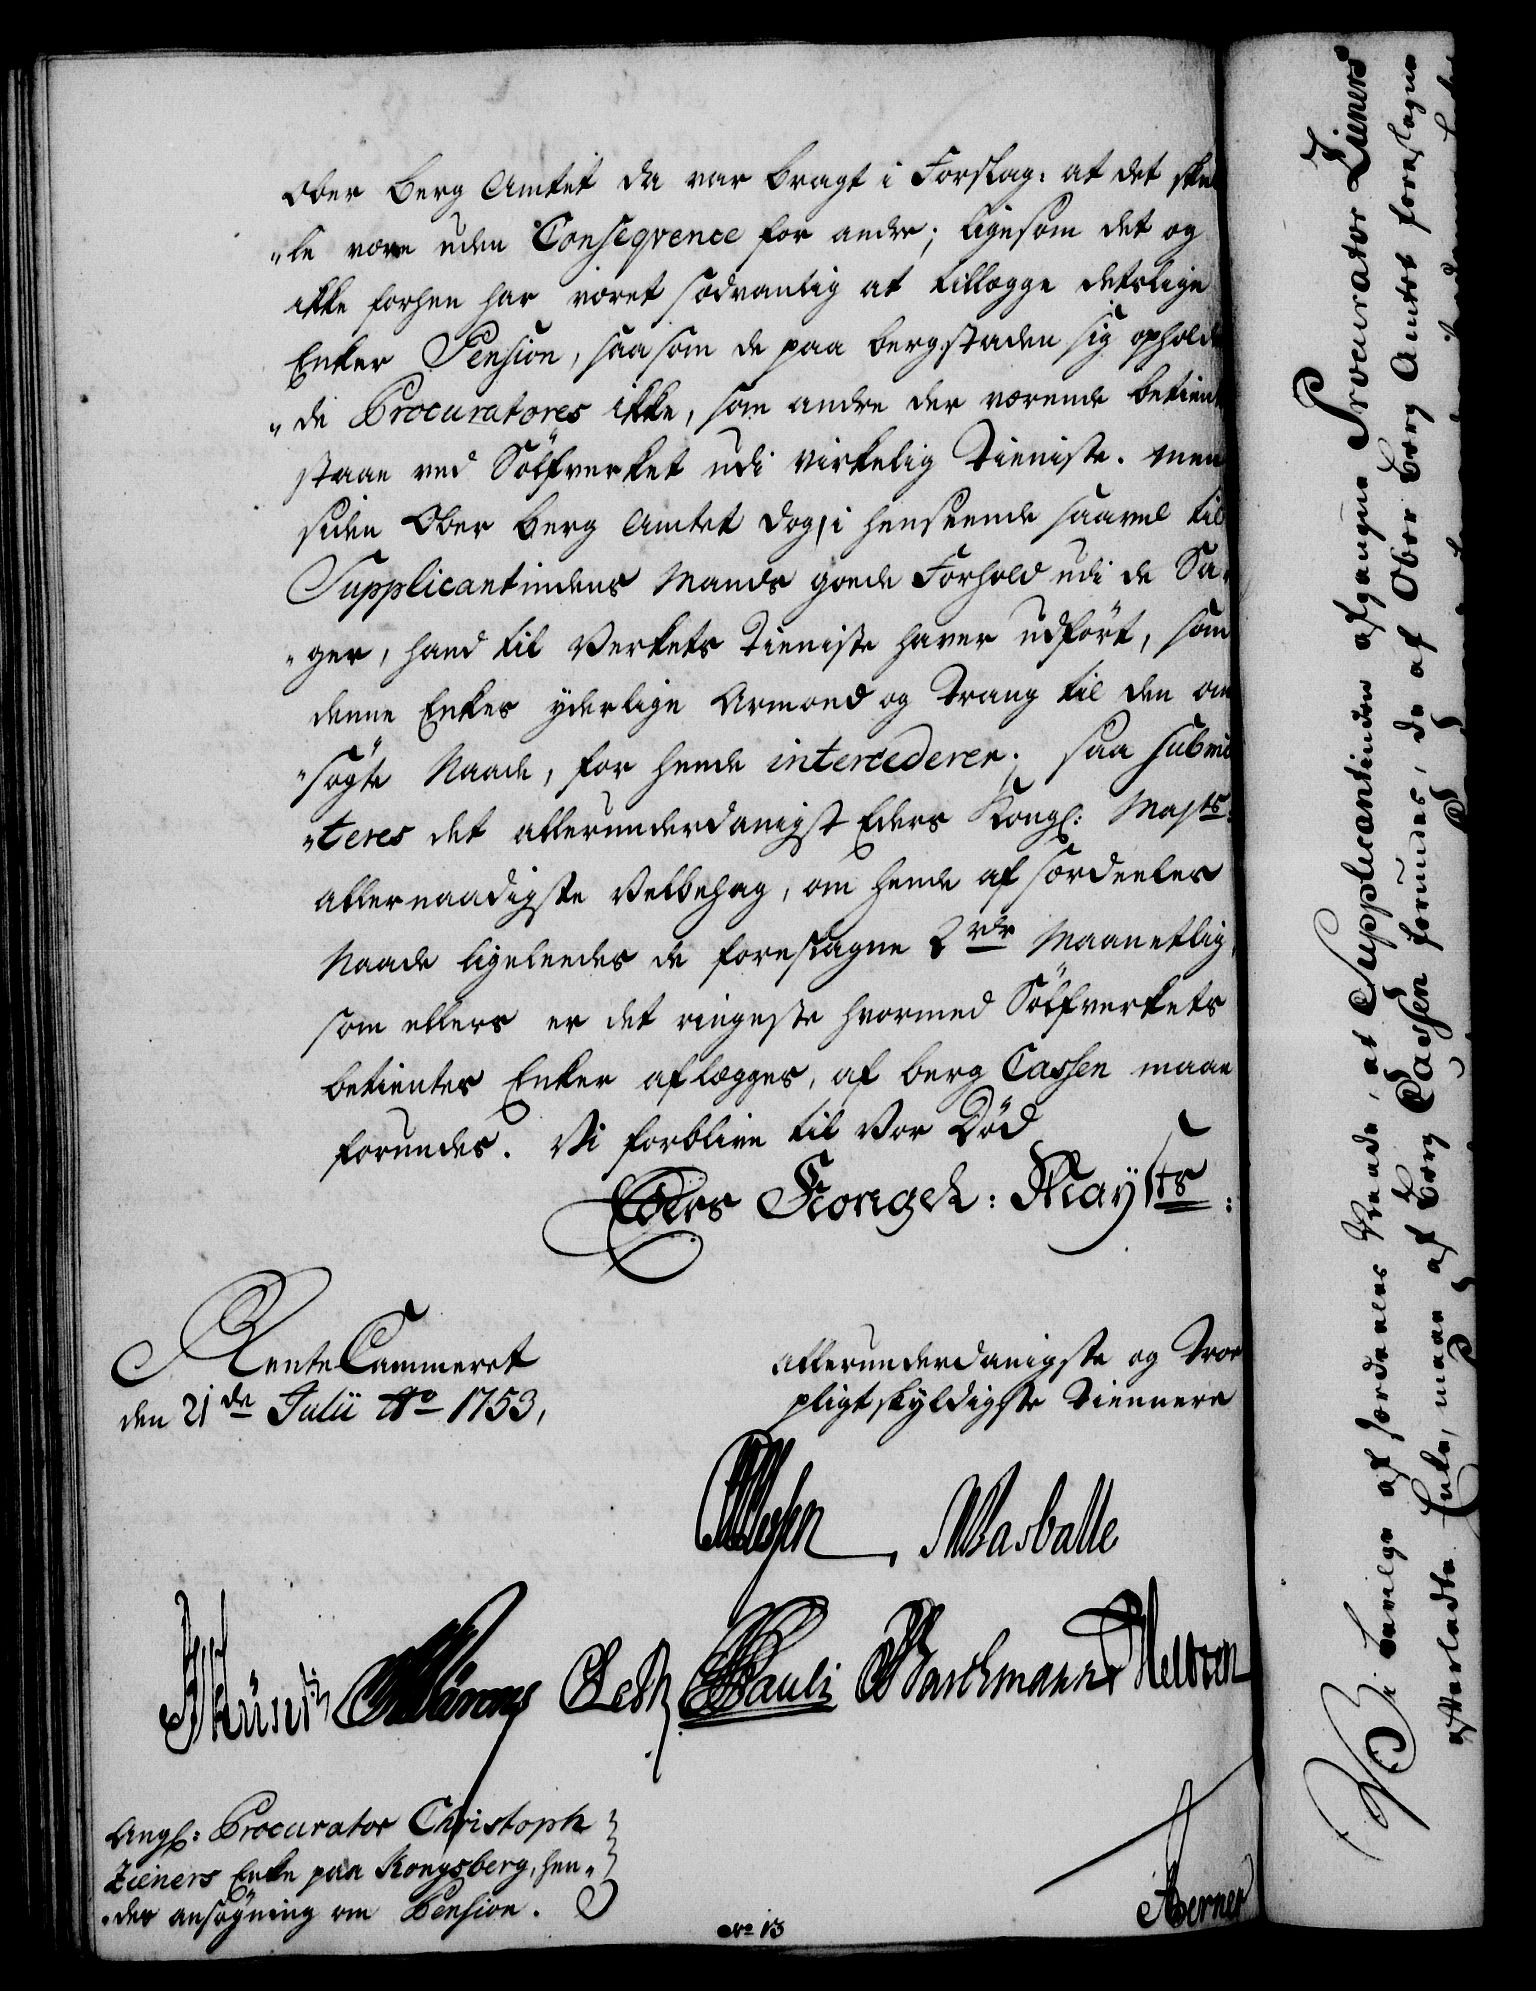 Ober Berg Amtet da var bragt i Forslag: at det skul
„le være uden Conseqvence for andre; ligesom det og
ikke forhen har været sædvanlig at tillægge deslige
Enker Pension, saasom de paa Bergstaden sig opholden
„de Procuratores ikke, som andre der værende betiente
staae ved Sölfverket udi virkelig Tieniste. Men
siden Ober Berg Amtet dog, i henseende saavel til
Supplicantindens Mands goede Forhold udi de Sa„
„ger, hand til Verkets Tieniste haver udfört, som
denne Enkes yderlige Armoed og Trang til den an
„søgte Naade, for hende intercederer; saa submit
„teres det allerunderdanigst Eders Kongl: Maysts:
allernaadigste Velbehag, om hende af særdeeles
Naade ligeleedes de foreslagne 2 rdr Maanetlig,
som ellers er det ringeste hvormed Sölfverkets
betientes Enker aflægges, af Berg Cassen maae
forundes. Vi forblive til Vor Död
Eders Kongel: Maysts:
RenteCammeret
den 21de Julii Ao 1753,
allerunderdanigste og Troe
pligtskyldigste Tiennere
Masballe
Pauli
Barchmann
Angl: Procurator Christoph
Zieners Enke paa Kongsberg, hen„
„des ansøgning om Pension.
No 13
Berner
Vi bevilge af særdeeles Naade, at Supplicantinden afgangne Procurator Zieners
efterladte Enke, maae af Berg Cassen forundes, de af Ober Berg Amtet foreslagne